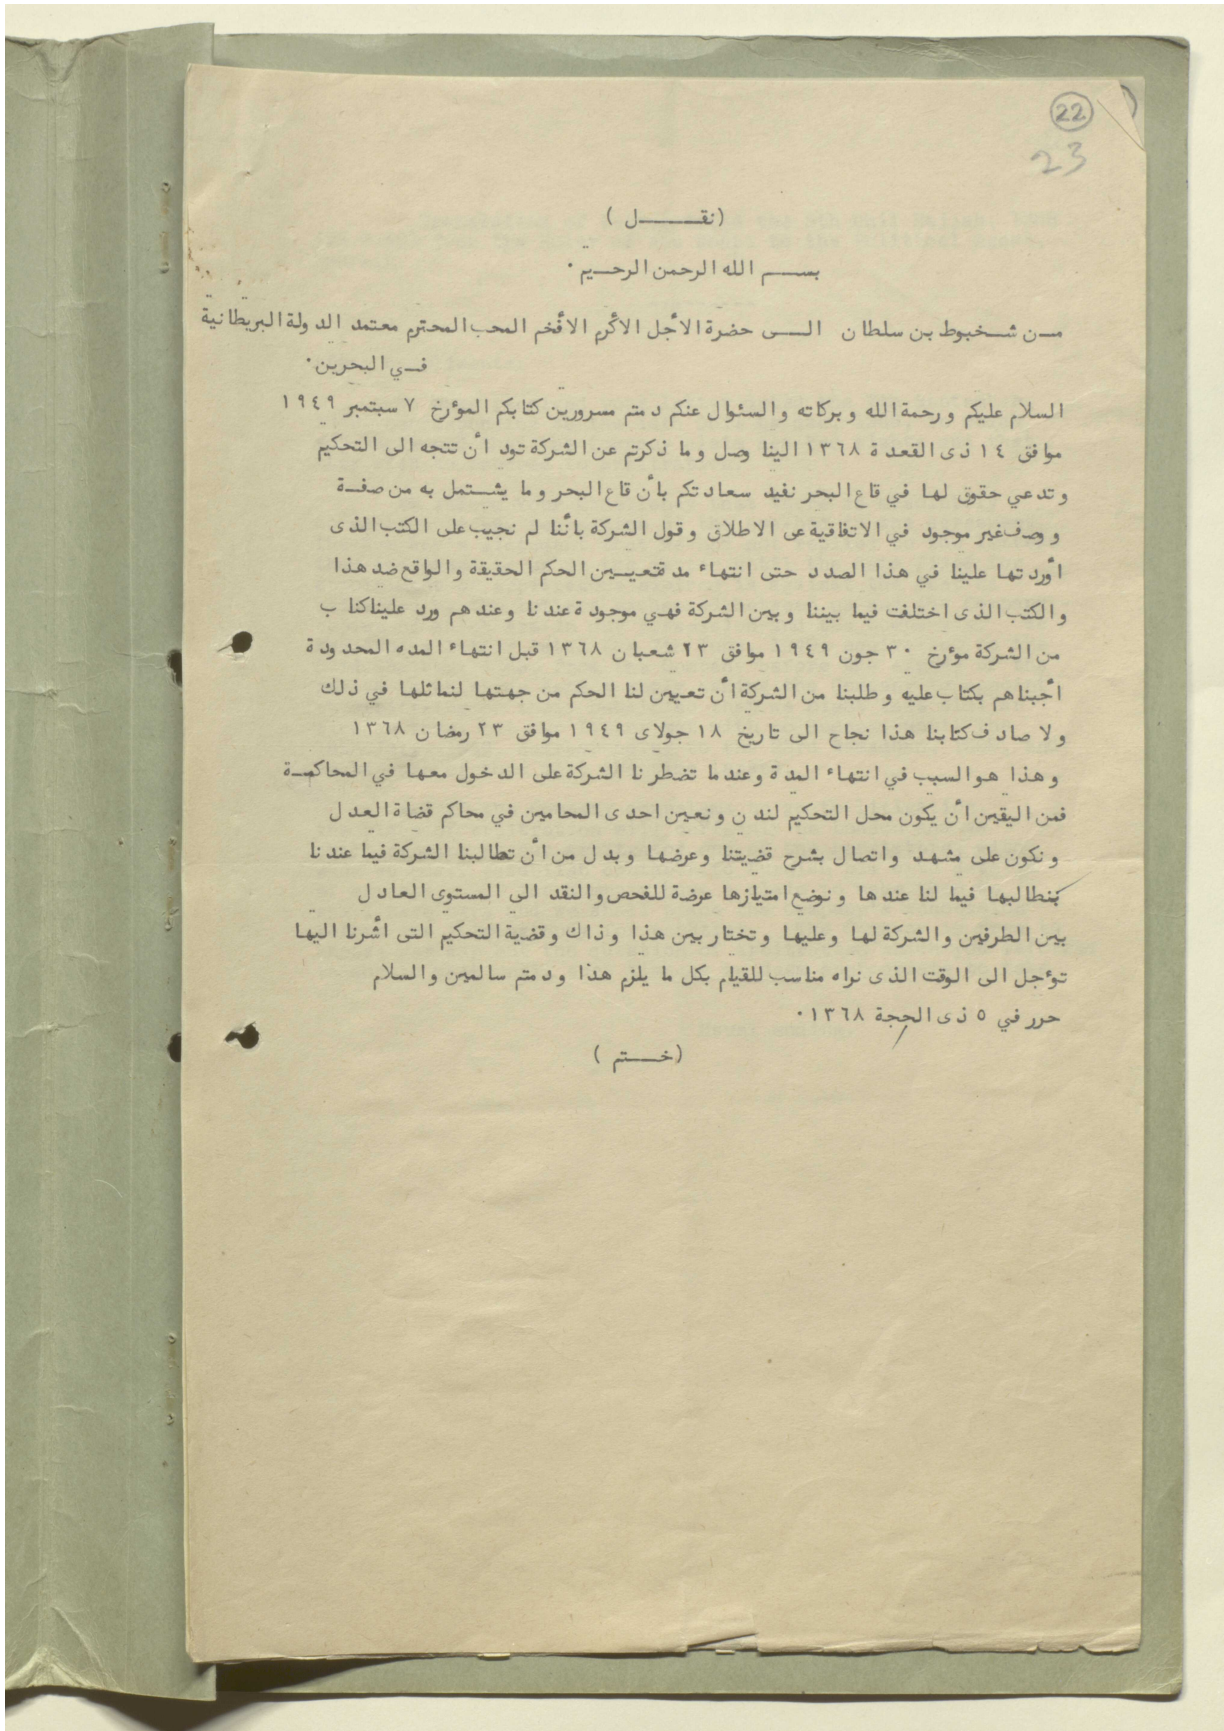 22
23
(نقـــــل )
بســـم الله الرحمن الرحـيم .
مـن شـخبوط بن سلطان الـــى حضرة الأجل الأكرم الأفخم المحب المحترم معتمد الدولة البريطانية
فـي البحرين .
السلام عليكم ورحمة الله وبركاته والسئوال عنكم دمتم مسرورين كتابكم المؤرخ ٧ سبتمبر ١٩٤٩
موافق ١٤ ذى القعدة ١٣٦٨ الينا وصل وما ذكرتم عن الشركة تود أن تتجه الى التحكيم
وتدعي حقوق لها في قاع البحر نفيد سعادتكم بأن قاع البحر وما يشـتمل به من صفـة
ووصف غير موجود في الاتفاقية عى الاطلاق وقول الشركة بأننا لم نجيب على الكتب الذى
أوردتها علينا في هذا الصدد حتى انتهاء مدة تعيـين الحكم الحقيقة والواقع ضد هذا
والكتب الذى اختلفت فيما بيننا وبين الشركة فهي موجودة عندنا وعندهم ورد علينا كتاب
من الشركة مؤرخ ٣٠ جون ١٩٤٩ موافق ٢٣ شعبان ١٣٦٨ قبل انتهاء المده المحدودة
أجبناهم بكتاب عليه وطلبنا من الشركة أن تعيين لنا الحكم من جهتها لنماثلها في ذلك
ولا صادف كتابنا هذا نجاح الى تاريخ ١٨ جولاى ١٩٤٩ موافق ٢٣ رمضان ١٣٦٨
وهذا هو السبب في انتهاء المدة وعندما تضطرنا الشركة على الدخول معها في المحاكمـة
فمن اليقين أن يكون محل التحكيم لندن ونعين احدى المحامين في محاكم قضاة العدل
ونكون على مشهد واتصال بشرح قضيتنا وعرضها وبدل من أن تطالبنا الشركة فيما عندنا
بنطالبها فيما لنا عندها ونوضع امتيازها عرضة للفحص والنقد الى المستوى العادل
بين الطرفين والشركة لها وعليها وتختار بين هذا وذاك وقضية التحكيم التى أشرنا اليها
تؤجل الى الوقت الذى نراه مناسب للقيام بكل ما يلزم هذا ودمتم سالمين والسلام
حرر في ٥ ذى الحجة ١٣٦٨ .
(خــتم )